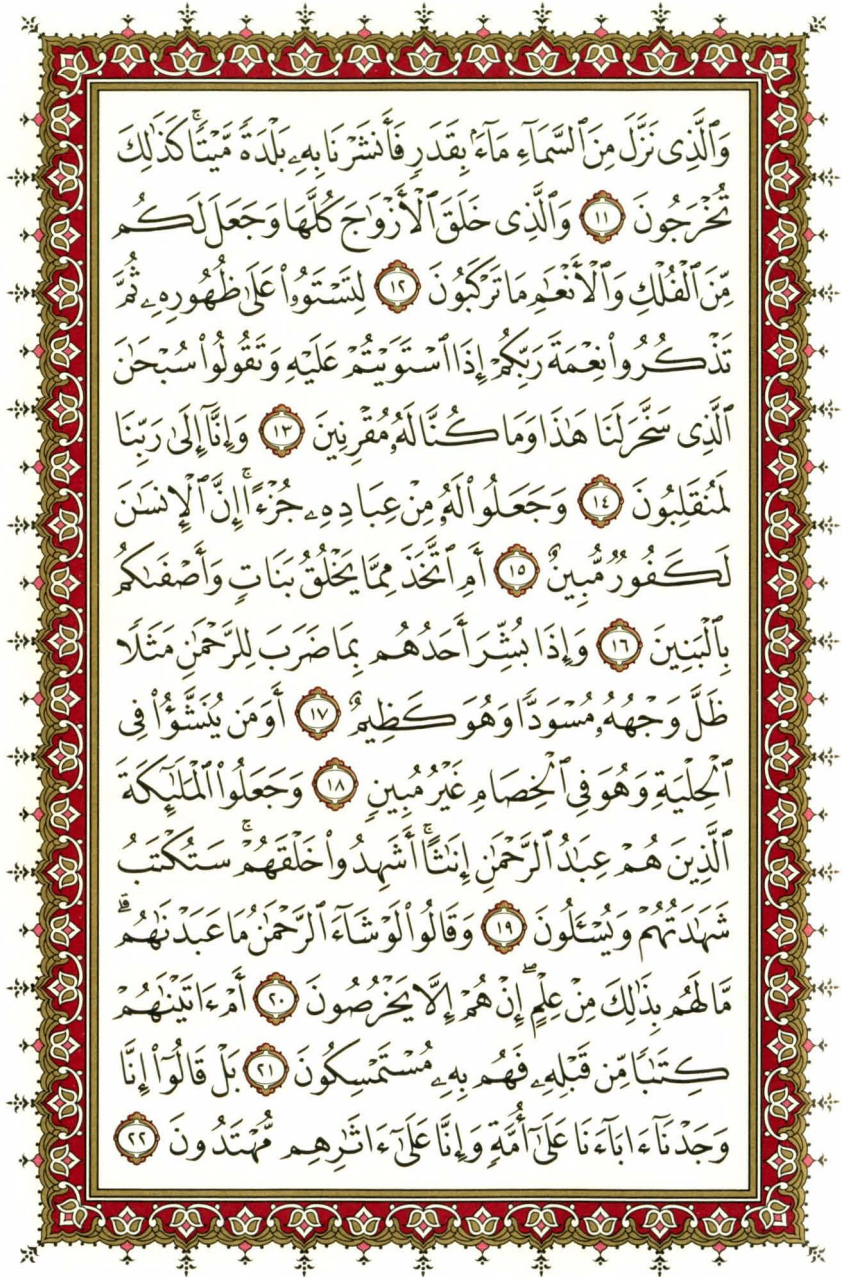 وَٱلَّذِى نَزَّلَ مِنَ ٱلسَّمَآءِ مَآءًۢ بِقَدَرٍ فَأَنشَرْنَا بِهِۦ بَلْدَةً مَّيْتًاۚ كَذَٰلِكَ
تُخْرَجُونَ ١١ وَٱلَّذِى خَلَقَ ٱلْأَزْوَٰجَ كُلَّهَا وَجَعَلَ لَكُم
مِّنَ ٱلْفُلْكِ وَٱلْأَنْعَٰمِ مَا تَرْكَبُونَ ١٢ لِتَسْتَوُۥا۟ عَلَىٰ ظُهُورِهِۦ ثُمَّ
تَذْكُرُوا۟ نِعْمَةَ رَبِّكُمْ إِذَا ٱسْتَوَيْتُمْ عَلَيْهِ وَتَقُولُوا۟ سُبْحَٰنَ
ٱلَّذِى سَخَّرَ لَنَا هَٰذَا وَمَا كُنَّا لَهُۥ مُقْرِنِينَ ١٣ وَإِنَّآ إِلَىٰ رَبِّنَا
لَمُنقَلِبُونَ ١٤ وَجَعَلُوا۟ لَهُۥ مِنْ عِبَادِهِۦ جُزْءًاۚ إِنَّ ٱلْإِنسَٰنَ
لَكَفُورٌ مُّبِينٌ ١٥ أَمِ ٱتَّخَذَ مِمَّا يَخْلُقُ بَنَاتٍ وَأَصْفَىٰكُم
بِٱلْبَنِينَ ١٦ وَإِذَا بُشِّرَ أَحَدُهُم بِمَا ضَرَبَ لِلرَّحْمَٰنِ مَثَلًا
ظَلَّ وَجْهُهُۥ مُسْوَدًّا وَهُوَ كَظِيمٌ ١٧ أَوَمَن يُنَشَّؤُا۟ فِى
ٱلْحِلْيَةِ وَهُوَ فِى ٱلْخِصَامِ غَيْرُ مُبِينٍ ١٨ وَجَعَلُوا۟ ٱلْمَلَٰٓئِكَةَ
ٱلَّذِينَ هُمْ عِبَٰدُ ٱلرَّحْمَٰنِ إِنَٰثًاۚ أَشَهِدُوا۟ خَلْقَهُمْۚ سَتُكْتَبُ
شَهَٰدَتُهُمْ وَيُسْـَٔلُونَ ١٩ وَقَالُوا۟ لَوْ شَآءَ ٱلرَّحْمَٰنُ مَا عَبَدْنَٰهُمۗ
مَّا لَهُم بِذَٰلِكَ مِنْ عِلْمٍۖ إِنْ هُمْ إِلَّا يَخْرُصُونَ ٢٠ أَمْ ءَاتَيْنَٰهُمْ
كِتَٰبًا مِّن قَبْلِهِۦ فَهُم بِهِۦ مُسْتَمْسِكُونَ ٢١ بَلْ قَالُوٓا۟ إِنَّا
وَجَدْنَآ ءَابَآءَنَا عَلَىٰٓ أُمَّةٍ وَإِنَّا عَلَىٰٓ ءَاثَٰرِهِم مُّهْتَدُونَ ٢٢